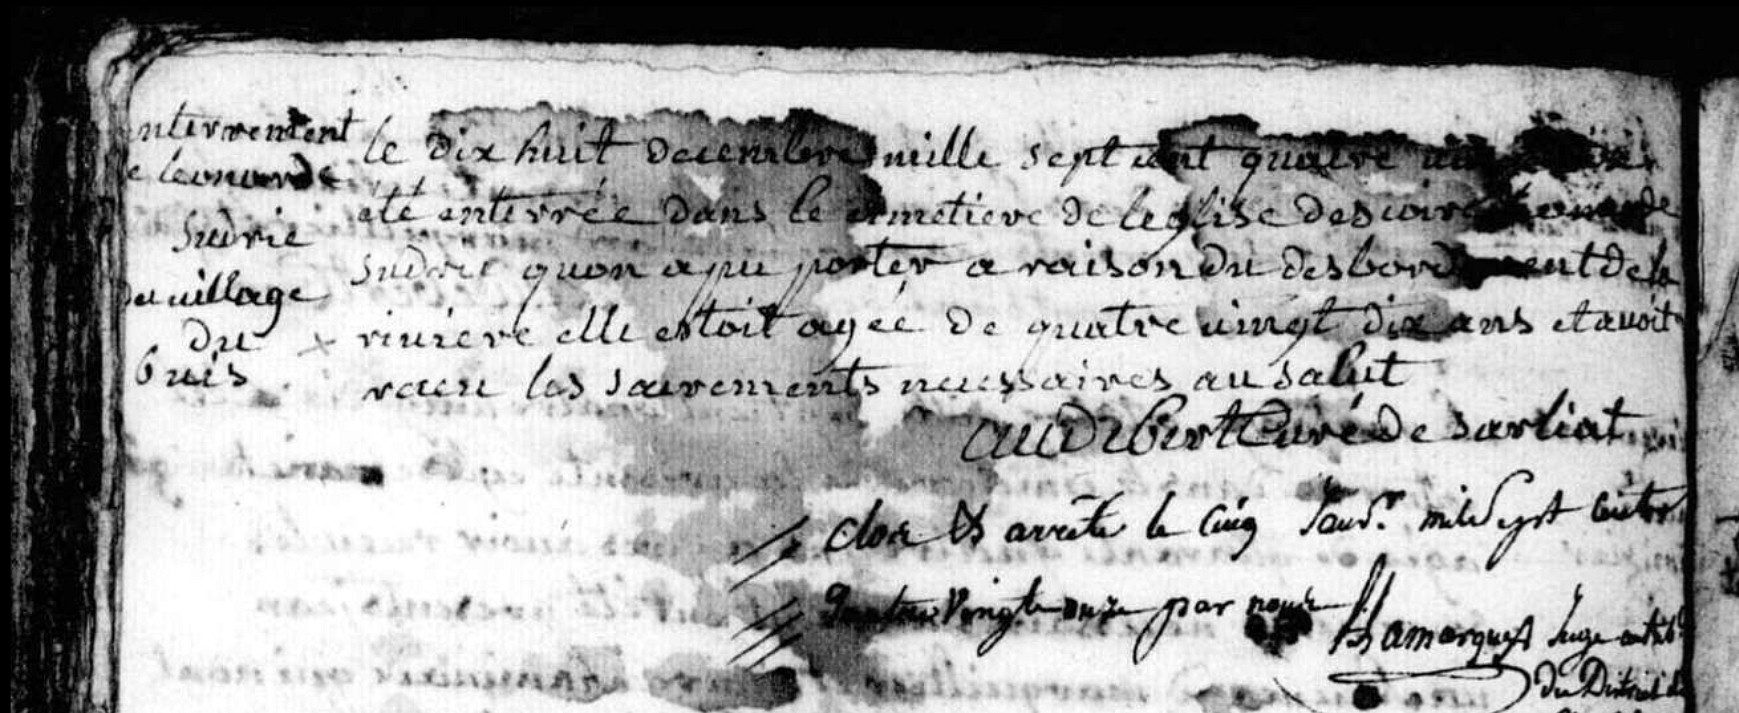 nterrement
e leonarde
Sudrie
du village
du
buis
le dix huit decembre mille sept cent quatre
eté enterrée dans le cimetiere de leglise descoire leonarde
Sudrie quon a pu porter a raison du desbordement de la
riviere elle estoit agée de quatre vingt dix ans et avoit
recu les sacrements necessaires au salut
audibert Curé de sarliat
clos & arreté le Cinq Janvr. mil Sept Cent
quatre Vingt onze par nous
Lamarque Juge
du District de